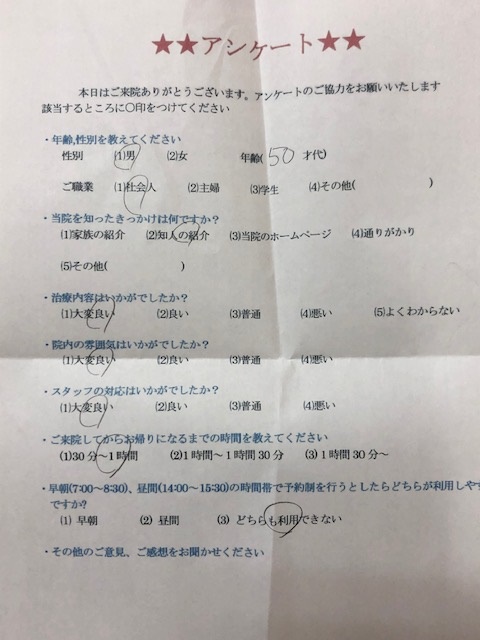 ★★アンケート★★
本日はご来院ありがとうございます。アンケートのご協力をお願いいたします
該当するところに〇印をつけてください
・年齢,性別を教えてください
性別 (1)男 (2)女 年齢(50 才代)
ご職業 (1)社会人 (2)主婦 (3)学生 (4)その他( )
・当院を知ったきっかけは何ですか?
(1)家族の紹介 (2)知人の紹介 (3)当院のホームページ (4)通りがかり
(5)その他( )
・治療内容はいかがでしたか?
(1)大変良い (2)良い (3)普通 (4)悪い (5)よくわからない
・院内の雰囲気はいかがでしたか?
(1)大変良い (2)良い (3)普通 (4)悪い
・スタッフの対応はいかがでしたか?
(1)大変良い (2)良い (3)普通 (4)悪い
・ご来院してからお帰りになるまでの時間を教えてください
(1)30分〜1時間 (2)1時間〜1時間30分 (3)1時間30分〜
・早朝(7:00〜8:30)、昼間(14:00〜15:30)の時間帯で予約制を行うとしたらどちらが利用しやす
ですか?
(1) 早朝 (2) 昼間 (3) どちらも利用できない
・その他のご意見、ご感想をお聞かせください